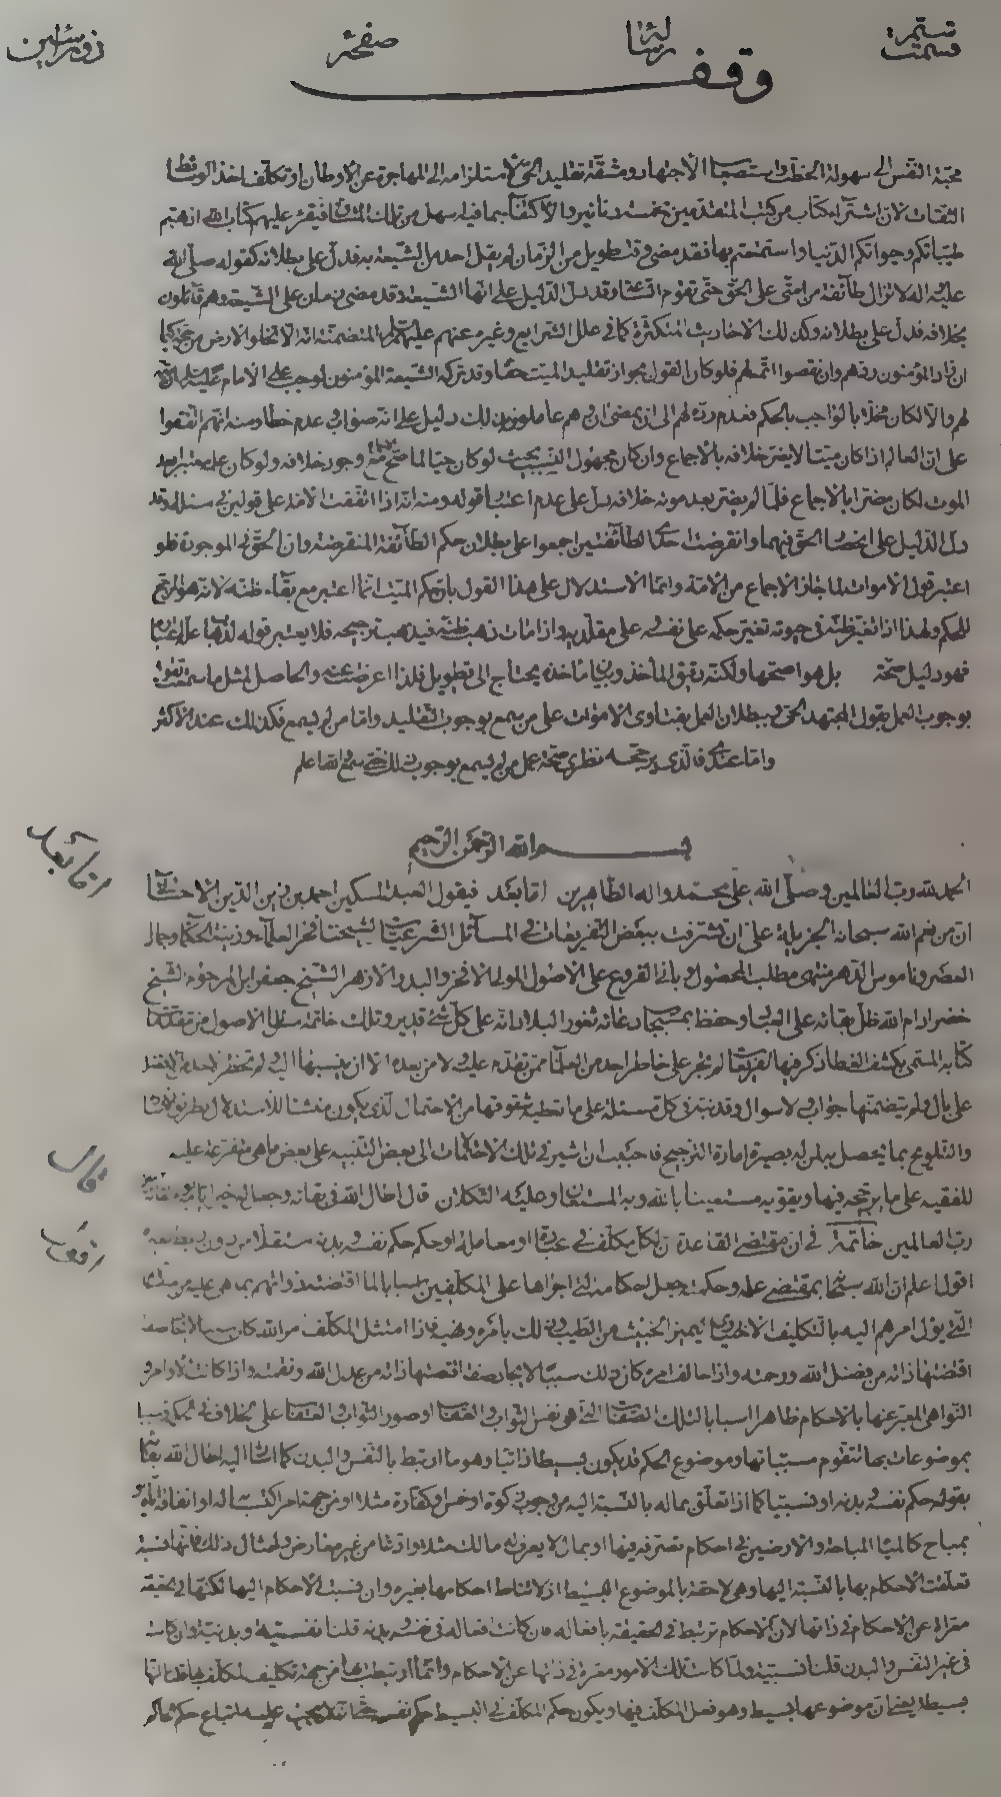 رسالة
صفحة
وقف
محبّة النفس الى سهولة الخطب واستصعاب الاجتهاد ومشقّة تقليد الحىّ لاستلزامه الى المهاجرة عن الاوطان او تكلّف اخذ الوسائط
الثقات لان اشتراء كتاب من كتب المتقدمين بخمسة دنانير والاكتفاء بما فيه سهل من تلك المشاق فيقرء عليهم كتاب الله اذهبتم
طيباتكم في حيوتكم الدنيا واستمتعتم بها فقد مضى وقت طويل من الزمان لم يقل احد من الشيعة به فدلّ على بطلانه كقوله صلى الله
عليه واله لا تزال طائفة من امتى على الحق حتى تقوم الساعة وقد دلّ الدليل على انها الشيعة وقد مضى زمان على الشيعة وهم قائلون
بخلافه فدلّ على بطلانه وكذلك الاحاديث المتكثرة كما في علل الشرايع وغيره عنهم عليهم السلام المتضمنة انه لا تخلو الارض من حجة كيما
ان زاد المؤمنون ردهم وان نقصوا اتمه لهم فلو كان القول بجواز تقليد الميت حقا وقد تركه الشيعة المؤمنون لوجب على الامام عليه السلام ردّه
لهم والّا لكان مخلا بالواجب بالحكم فعدم ردّه لهم الى ان يمضى ان وهم عاملون بذلك دليل على انه صواب وعدم خطاء ومنه انهم اتفقوا
على ان العالم اذا كان ميتا لا يضر خلافه بالاجماع وان كان مجهول النسب بحيث لو كان حيا لما صح مع وجود خلافه ولو كان معتبرا بعد
الموت لكان مضرا بالاجماع فلما لم يضر بعد موته خلافه دلّ على عدم اعتبار قوله ومنه انه اذا اتفقت الامة على قولين في مسئلة وقد
دل الدليل على انحصار الحق فيهما وانقرضت احدى الطائفتين اجمعوا على بطلان حكم الطائفة المنقرضة وان الحق في الموجودة فلو
اعتبر قول الاموات لما جاز الاجماع من الامة واما الاستدلال على هذا القول بان حكم الميت انما اعتبر مع بقاء ظنه لانه هو المرجح
للحكم ولهذا اذا تغير ظنه في حيوته تغير حكمه على نفسه وعلى مقلديه واذا مات ذهب ظنه فيذهب ترجيحه فلا يعتبر قوله
فهو دليل صحة بل هو اصحها ولكنه دقيق المأخذ وبيان مأخذه يحتاج الى تطويل فلذا اعرضت عنه والحاصل لمثل ما سمعت نقول
بوجوب العمل بقول المجتهد الحى وببطلان العمل بفتاوى الاموات على من سمع بوجوب التقليد واما من لم يسمع فكذلك عند الاكثر
واما عندى فالذى يرجحه نظرى صحة عمل من لم يسمع بوجوب ذلك حتى يسمع والله اعلم
بسم الله الرحمن الرحيم
اما بعد
الحمد لله رب العالمين وصلى الله على محمد واله الطاهرين اما بعد فيقول العبد المسكين احمد بن زين الدين الاحسائى
ان من نعم الله سبحانه الجزيلة على ان تشرفت ببعض التفريعات في المسائل الشرعيات لشيخنا فخر العلماء وزينة الحكماء وجمال
العصر وناموس الدهر منتهى مطلب المحصول وبانى الفروع على الاصول المولى الافخر والبدر الازهر الشيخ جعفر ابن المرحوم الشيخ
خضر ادام الله ظل بقائه على العباد وحفظ بمسبحات دعائه ثغور البلاد انه على كل شئ قدير وتلك خاتمة مسائل الاصول من مقدمات
كتابه المسمى بكشف الغطاء ذكر فيها تفريعات لم تخطر على خاطر احد من العلماء ممن تقدمه عليه ولا من بعده الا ان ينسبها اليه
على بال ولم يتضمنها جواب ولا سوال وقد نبه في كل مسئلة على ما تطيه شقوقها من الاحتمال الذى يكون منشأ للاستدلال
والتلويح بما يحصل به لمن له بصيرة امارة الترجيح فاحببت ان اشير في تلك الاحتمالات الى بعض التنبيه على بعض ما هى متفرعة عليه
قال
للفقيه على ما يرجحه فيها ويقويه مستعينا بالله وبه المستعان وعليه التكلان قال اطال الله في بقائه وجعل
اقول
رب العالمين خاتمة في ان مقتضى القاعدة ان لكل مكلف في عبادة او معاملة او حكم حكم نفسه وبدنه مستقلا من دون
اقول اعلم ان الله سبحانه بمقتضى علمه وحكمته جعل احكامه التى اجراها على المكلفين اسبابا لما اقتضته ذواتهم بما هى عليه
التى يؤل امرهم اليه بالتكليف الاختيارى ليميز الخبيث من الطيب وذلك بامره ونهيه فاذا امتثل المكلف امر الله كان سببا لايجاد صفة
اقتضتها ذاته من فضل الله ورحمته واذا خالف امره كان ذلك سببا لايجاد صفة اقتضتها ذاته من عدل الله ونقمته واذا كانت الاوامر و
النواهى المعبر عنها بالاحكام ظاهرا اسبابا لتلك الصفات التى هى نفس الثواب والعقاب او صور الثواب والعقاب على الخلاف
بموضوعات بها تتقوم مسبباتها وموضوع الحكم قد يكون بسيطا ذاتيا وهو ما ارتبط بالنفس والبدن كما اشار اليه اطال الله بقاه
بقوله حكم نفسه وبدنه او نسبتيا كما اذا تعلق بماله بالنسبة اليه من وجوب زكوة او خمس او كفارة مثلا او من جهة امر اكتسابه او انفاقه
بمباح كالمياه المباحة والارضين في احكام تصرفه فيها او بمال لا يعرف له مالك مثلا وارثا من غير معارض وامثال ذلك فانها نسبة
تعلقت الاحكام بها بالنسبة اليها وهى لاحقة بالموضوع البسيط اذ لا تناط احكامها بغيره وان نسبت الاحكام اليها لكنها في الحقيقة
معراة عن الاحكام في ذاتها لان الاحكام ترتبط في الحقيقة بافعاله فان كانت افعاله في نفسه وبدنه قلنا نفسية وبدنية وان كانت
في غير النفس والبدن قلنا نسبية ولما كانت تلك الامور معراة في ذاتها عن الاحكام وانما ارتبطت بها من جهة تكليف المكلف بها قلنا انها
بسيطة يعنى ان موضوعها بسيط وهو فعل المكلف فيها ويكون حكم المكلف في البسيط حكم نفسه عليه اتباع حكم